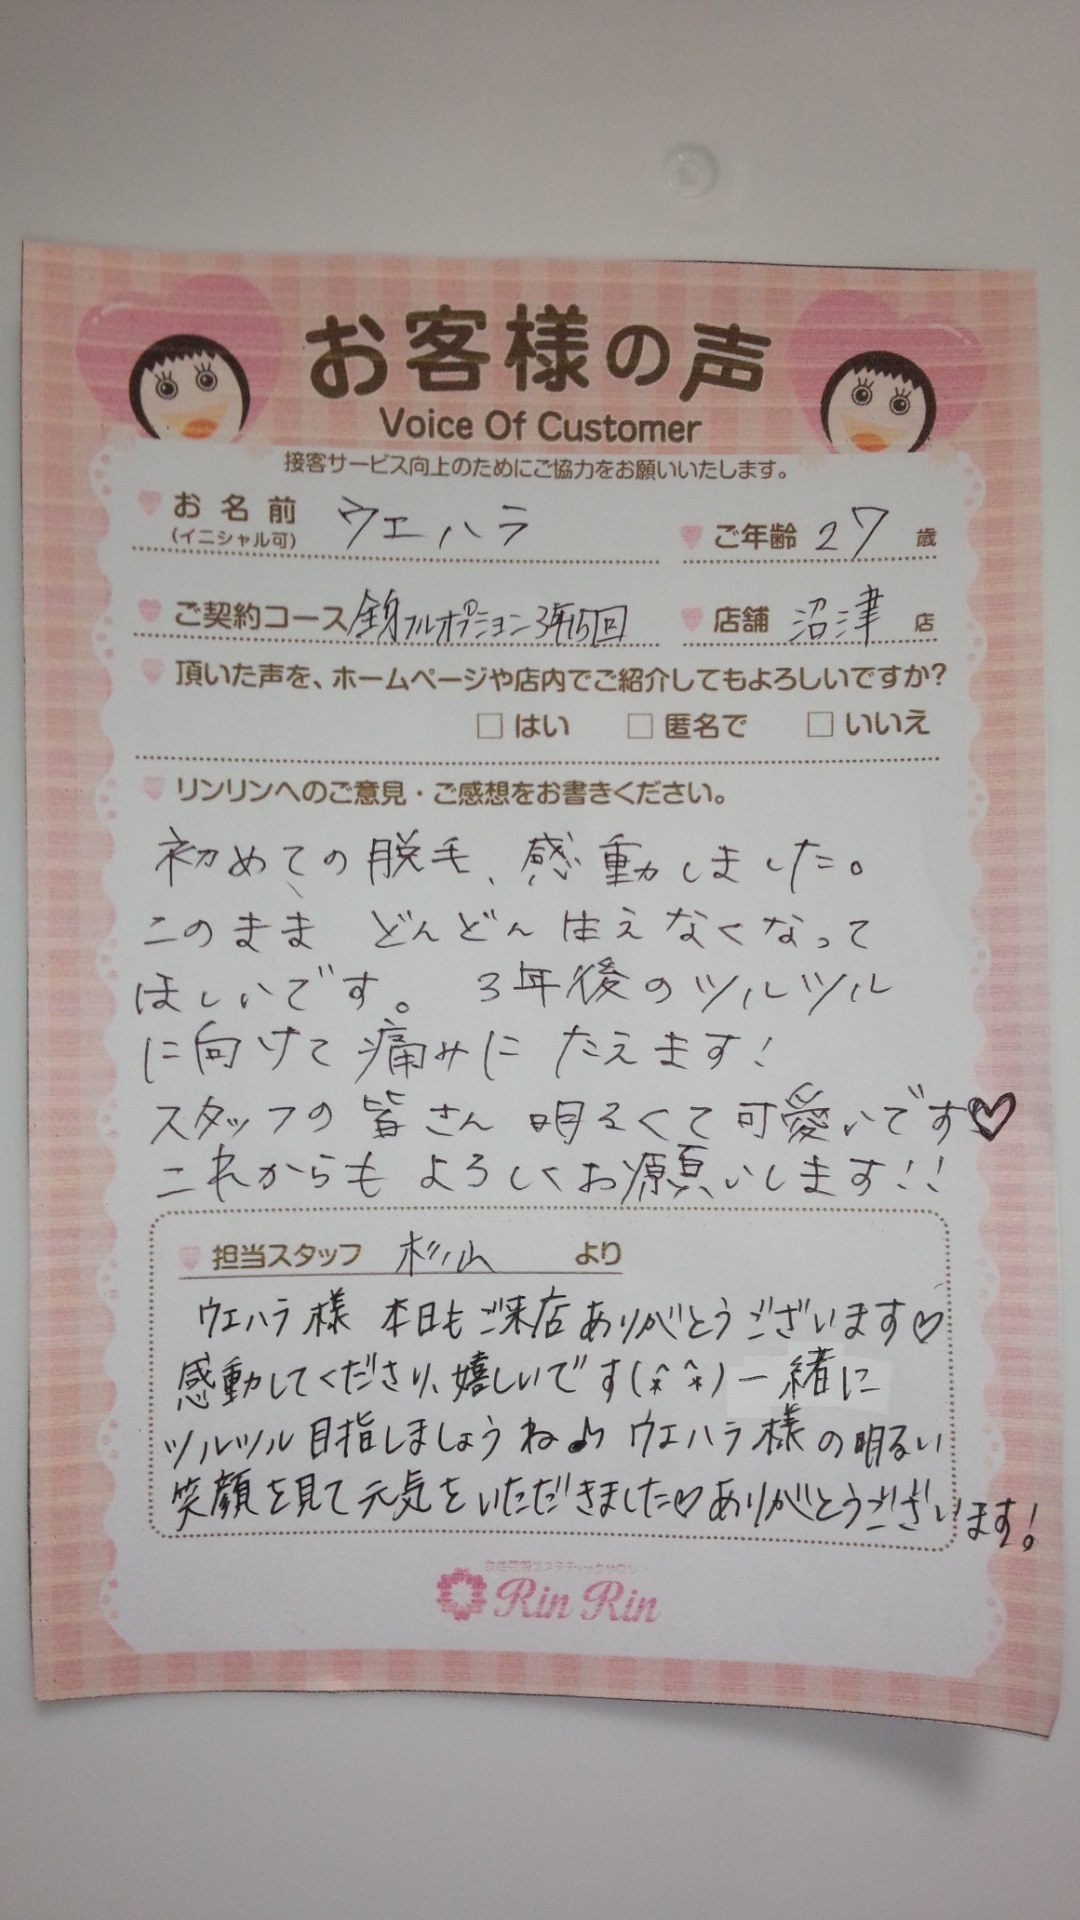 お客様の声
Voice Of Customer
接客サービス向上のためにご協力をお願いいたします。
お名前 ウエハラ ご年齢 27 歳
(イニシャル可)
ご契約コース 全身フルオプション3年15回 店舗 沼津 店
頂いた声を、ホームページや店内でご紹介してもよろしいですか?
□ はい □ 匿名で □ いいえ
リンリンへのご意見・ご感想をお書きください。
初めての脱毛、感動しました。
このまま どんどん 生えなくなって
ほしいです。 3年後のツルツル
に向けて痛みに たえます!
スタッフの 皆さん 明るくて可愛いです♡
これからも よろしくお願いします!!
担当スタッフ 杉山 より
ウエハラ様 本日もご来店ありがとうございます♡
感動してくださり、嬉しいです(*^^*)一緒に
ツルツル目指しましょうね♪ ウエハラ様の明るい
笑顔を見て元気をいただきました♡ありがとうございます!
女性専用エステティックサロン
Rin Rin